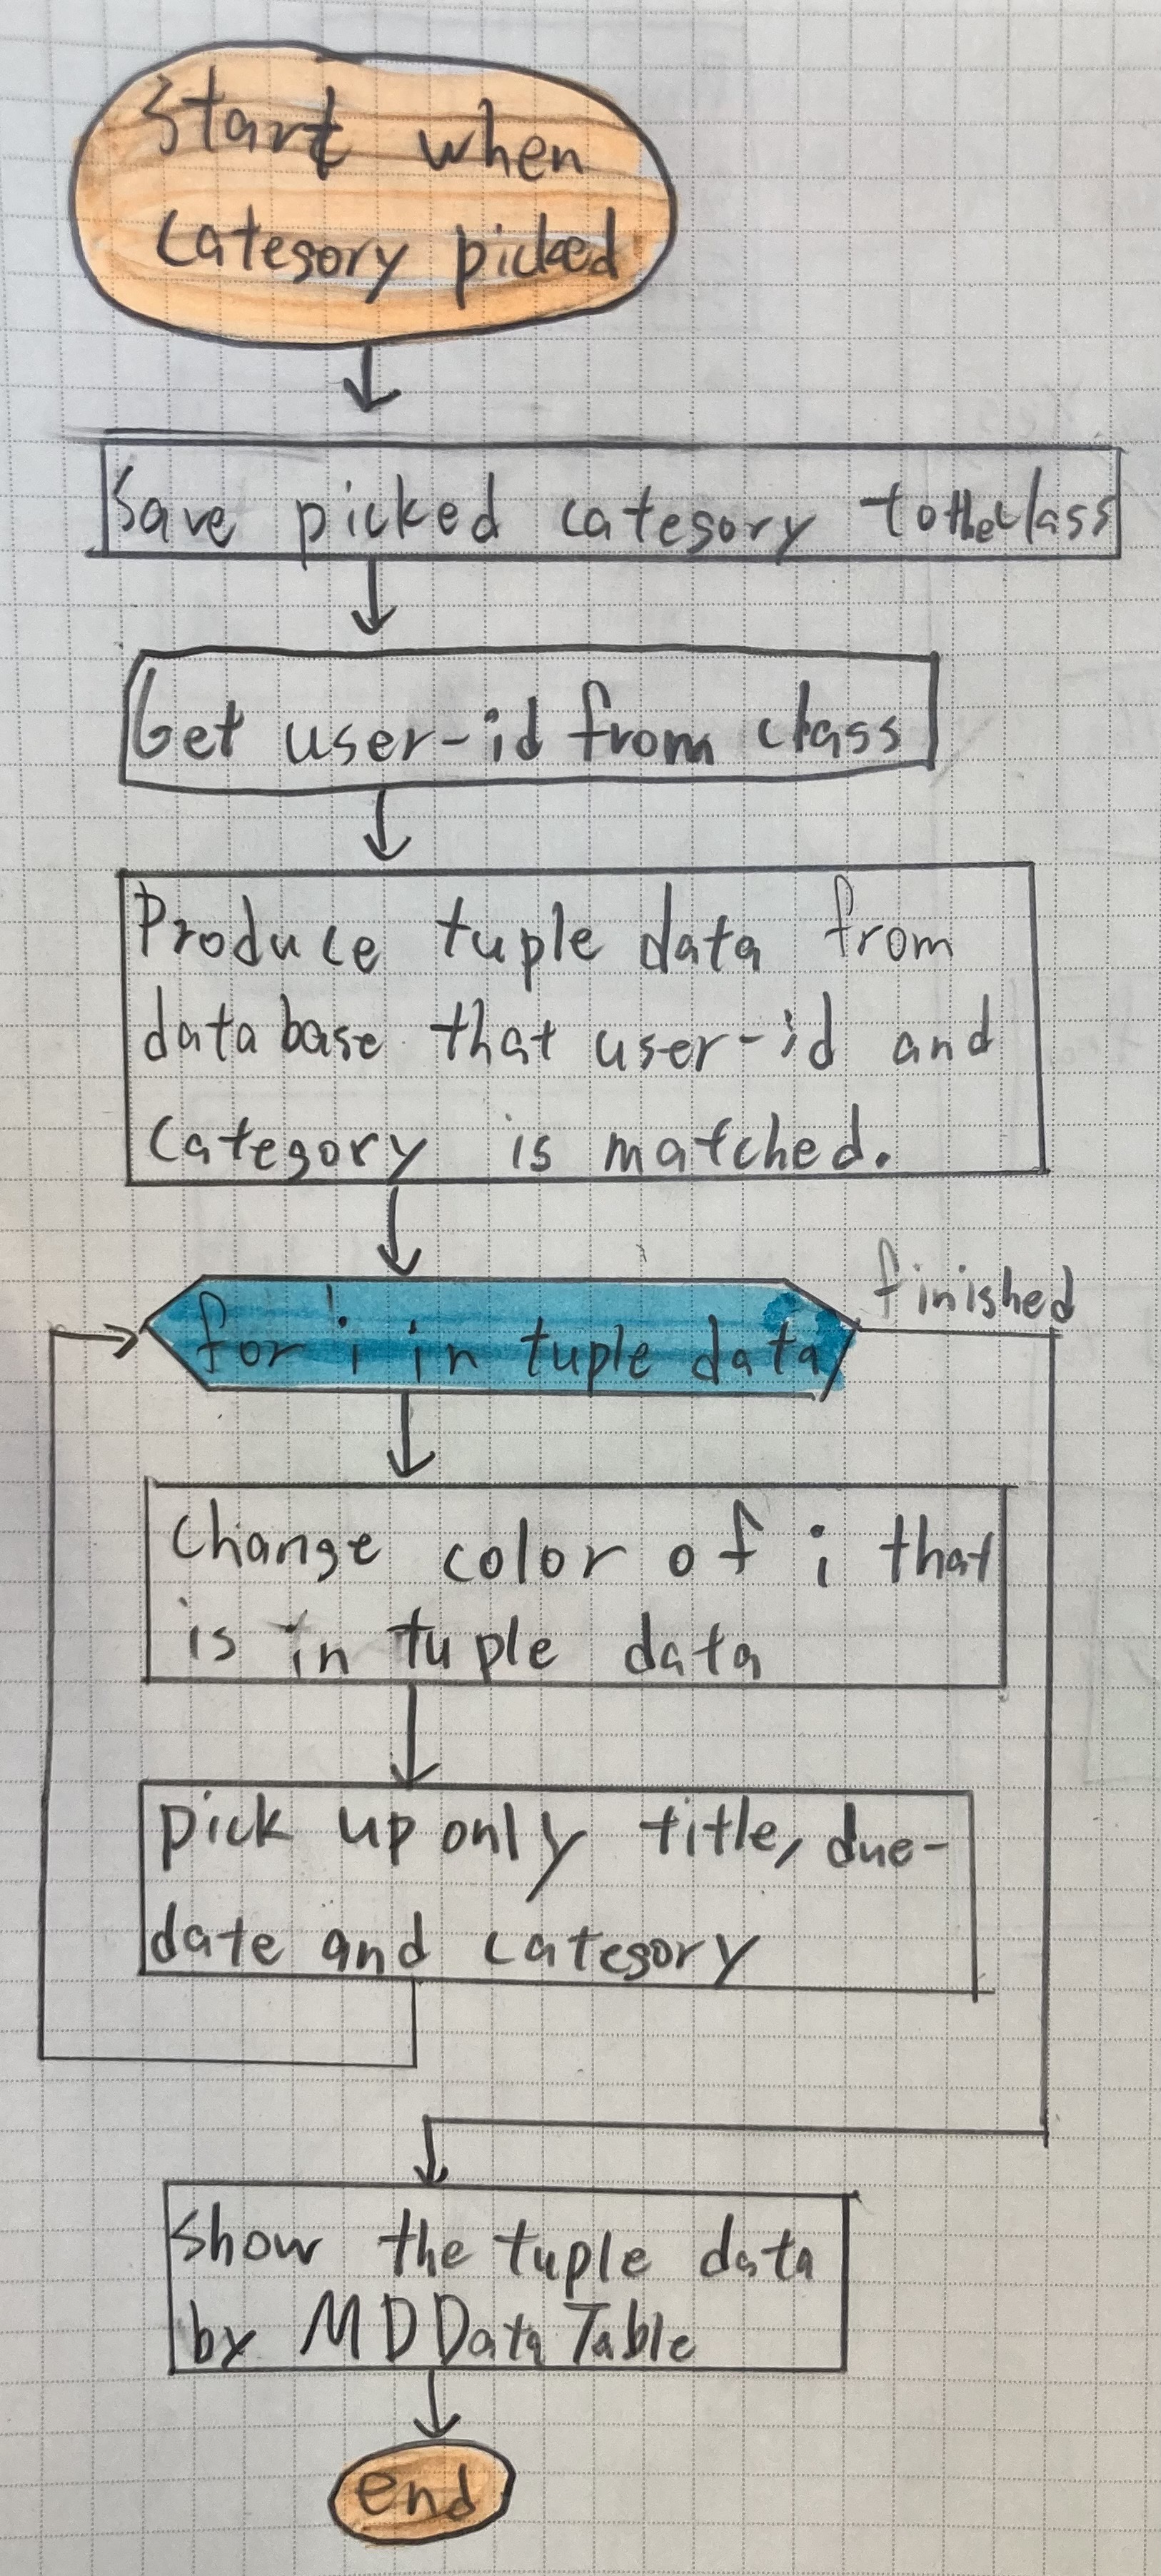 Start when
category picked
Save picked category to the class
Get user-id from class
Produce tuple data from
database that user-id and
category is matched.
finished
for i in tuple data
Change color of i that
is in tuple data
pick up only title, due-
date and category
Show the tuple data
by MDDataTable
end